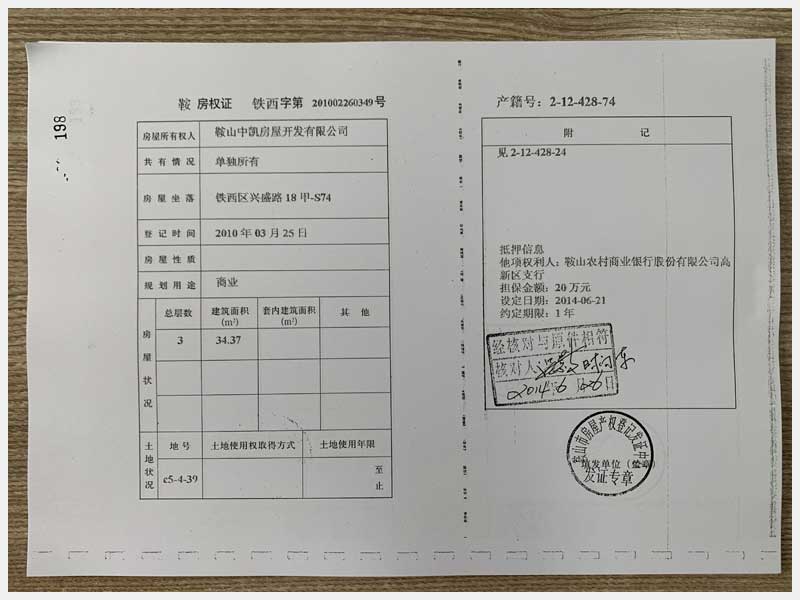 198
鞍 房权证 铁西字第 201002260349号
房屋所有权人 鞍山中凯房屋开发有限公司
共有情况 单独所有
房屋坐落 铁西区兴盛路 18 甲-S74
登记时间 2010 年 03 月 25 日
房屋性质
规划用途 商业
房屋状况
总层数 建筑面积 (m²) 套内建筑面积 (m²) 其他
3 34.37
土地状况
地号 土地使用权取得方式 土地使用年限
c5-4-39 至
止
产籍号：2-12-428-74
附 记
见 2-12-428-24
抵押信息
他项权利人：鞍山农村商业银行股份有限公司高
新区支行
担保金额：20 万元
设定日期：2014-06-21
约定期限：1 年
经核对与原件相符
核对人
2014 6 26日
鞍山市房屋产权登记发证中心
填发单位（盖章）
发证专章